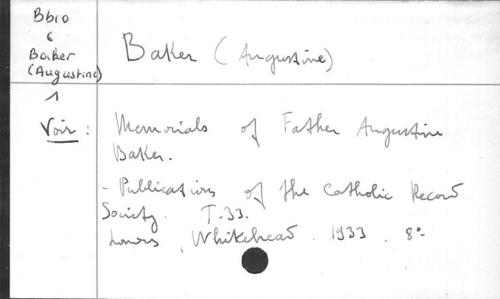 Bb10
6
Baker
(Augustine)
1
Baker (Augustine)
Voir :
Memorials of Father Augustine
Baker.
- Publications of the Catholic Record
Society. T.33.
Londres, Whitehead. 1933. 8°